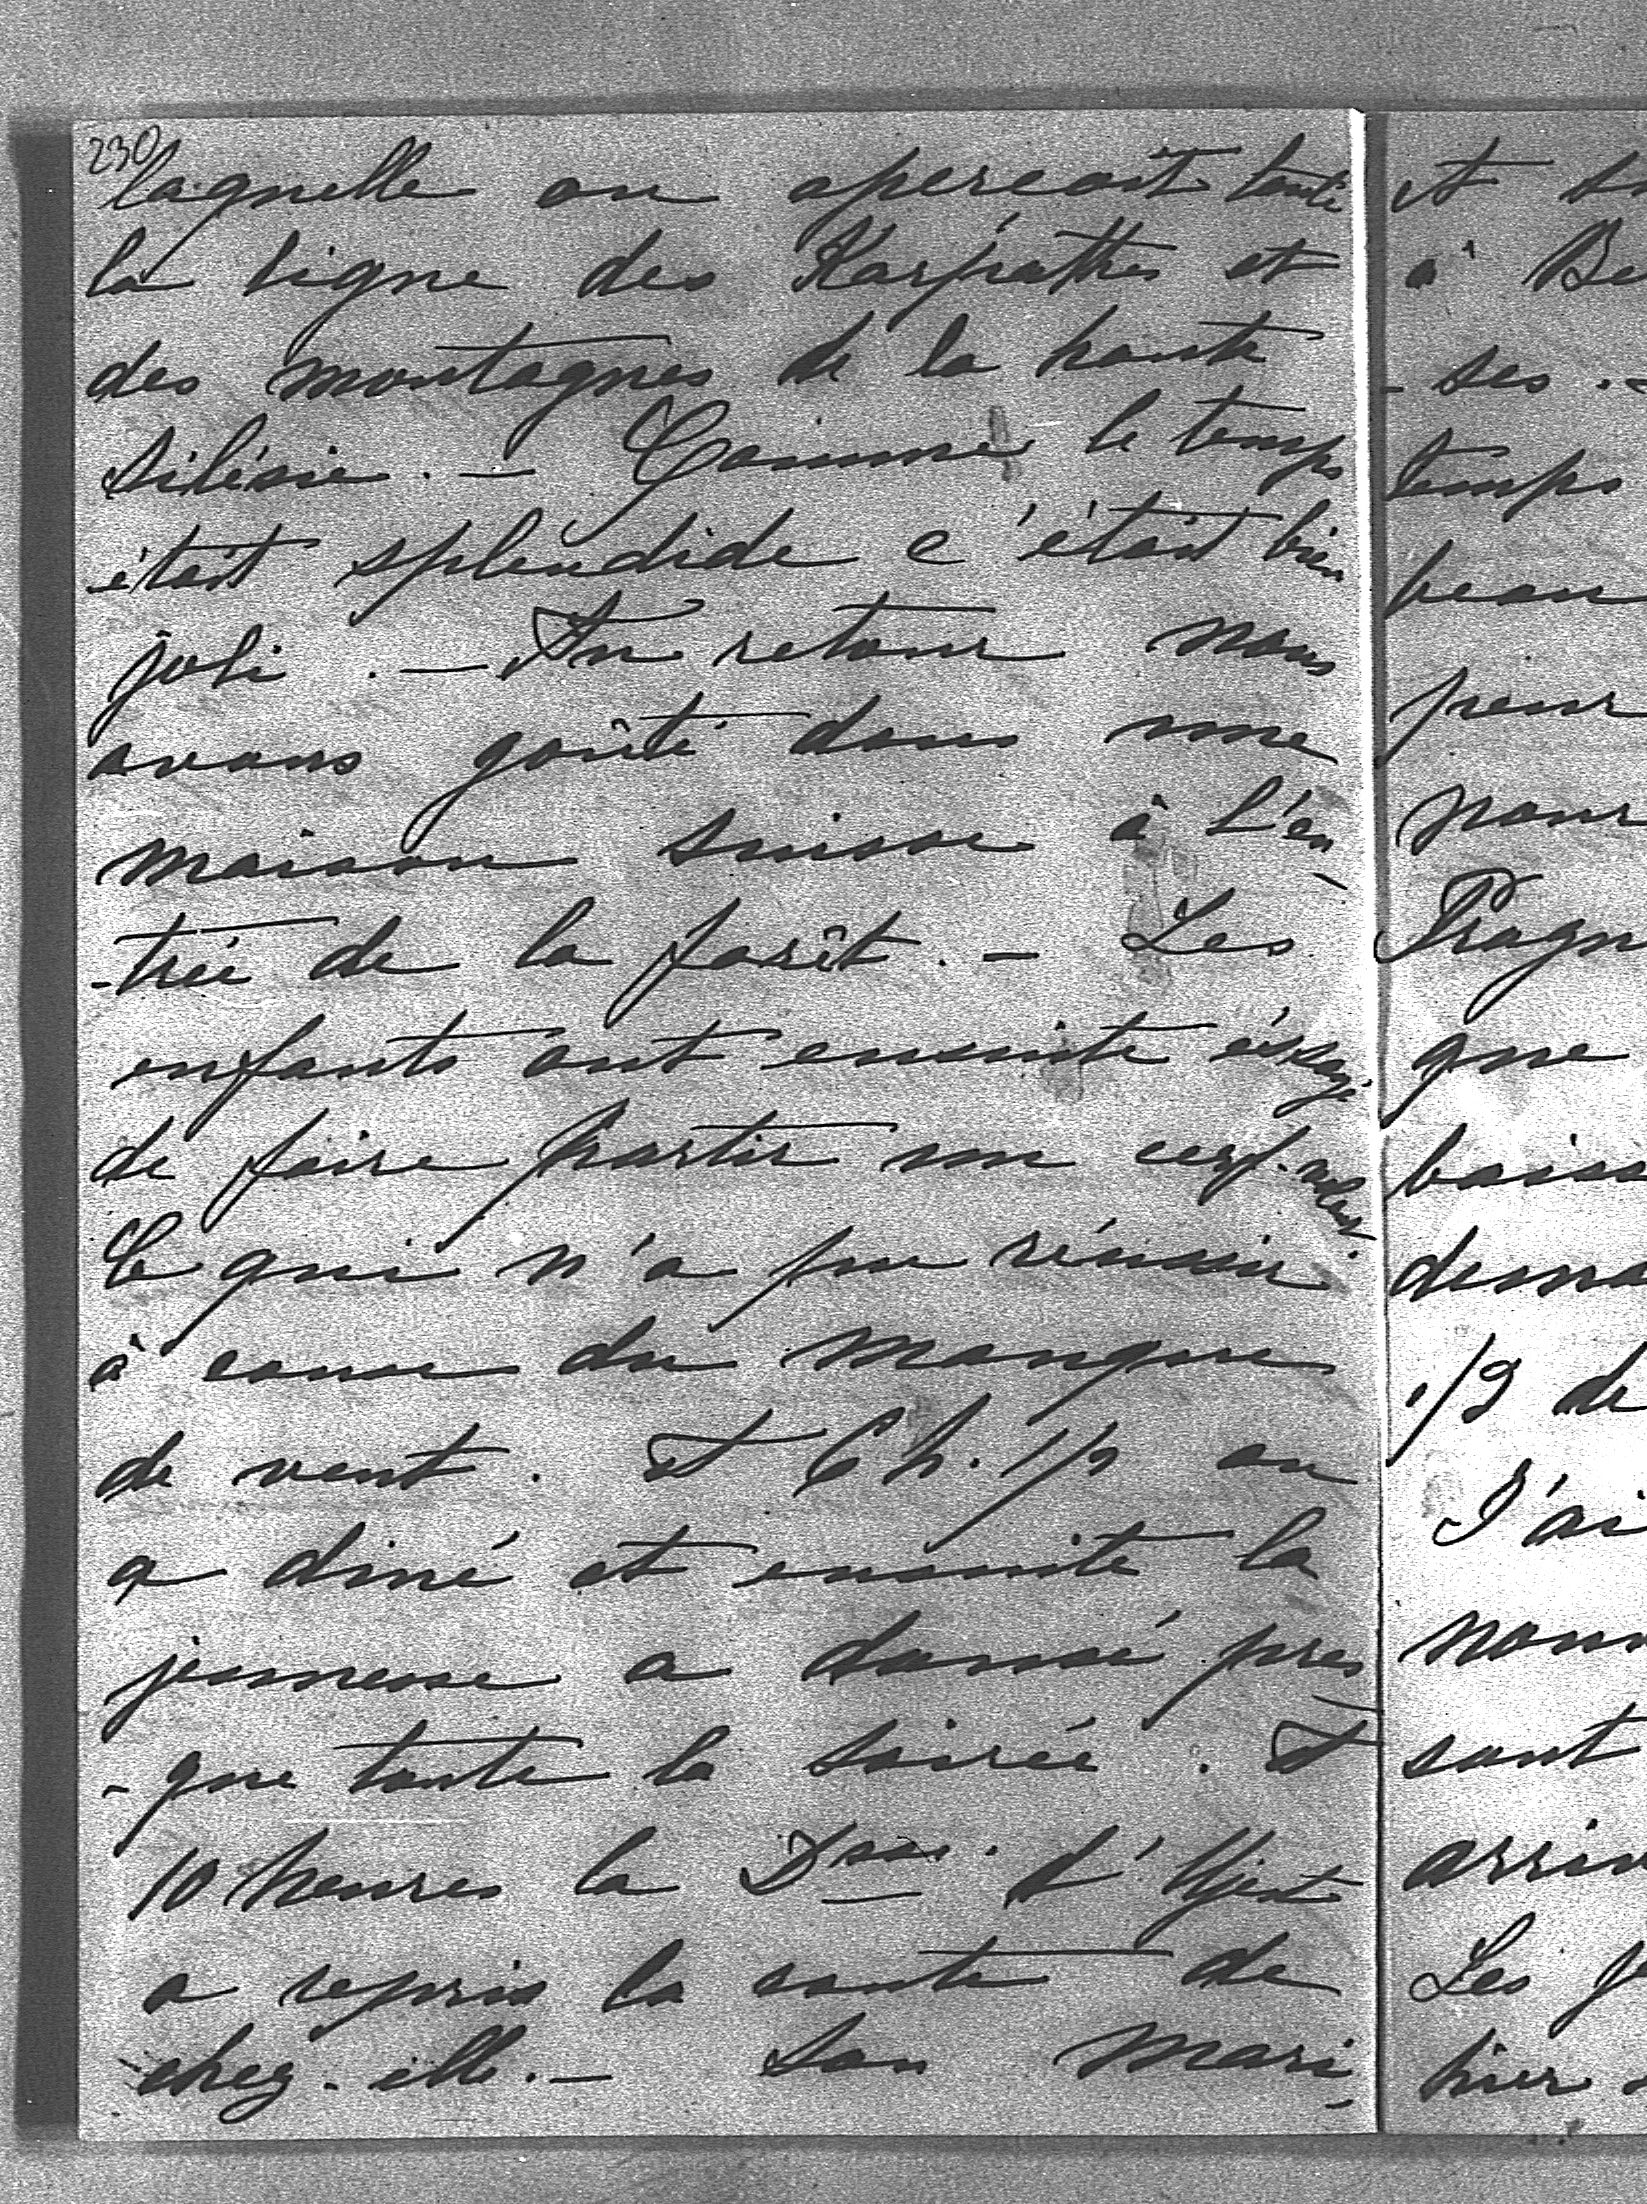 230
laquelle on apercoit toute
la ligne des Karpathes et
des montagnes de la haute
Silésie. — Comme le temps
était splendide c'était bien
joli. — Au retour nous
avons goûté dans une
maison suisse à l'en-
-trée de la forêt. — Les
enfants ont ensuite éssayé
de faire partir un cerf-volant.
Ce qui n'a pu réussir
à cause du manque
de vent. A 6 h. 1/2 on
a diné et ensuite la
jeunesse a dansé pres-
-que toute la soirée. A
10 heures la Dsse. d'Ujest
a repris la route de
chez-elle. — Son mari,
et
à Be
-ses.
temps
beau
peur
pour
Prague
que
baiss
dema
1/2 de
J'ai
nour
sont
arriv
Les je
hier